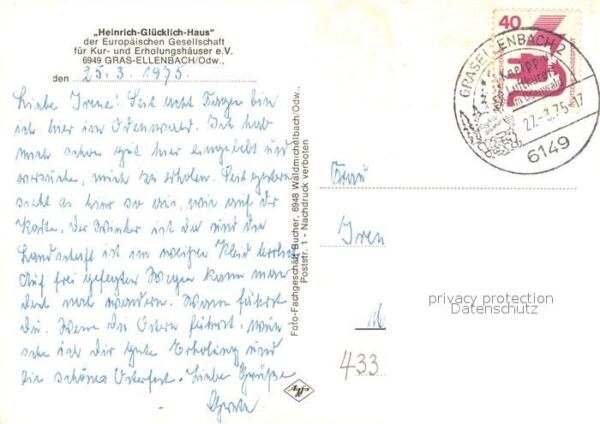 „Heinrich-Glücklich-Haus"
der Europäischen Gesellschaft
für Kur- und Erholungshäuser e.V.
6949 GRAS-ELLENBACH/Odw.,
den 25. 3. 1975
Liebe Irene! Seit acht Tagen bin
ich hier im Odenwald. Ich hab
mich schon gut hier eingelebt und
versuche, mich zu erholen. Seit gestern
sieht es hier so aus, wie auf der
Karte. Der Winter ist da und die
Landschaft ist im weißen Kleid herrlich
Auf frei gefegten Wegen kann man
wandern. Wann fährst
Du. Wenn Du Ostern fährst,
ich Dir gute Erholung und
ein schönes Osterfest. Liebe Grüße
Foto-Fachgeschäft Bucher, 6948 Waldmichelbach/Odw.,
Poststr. 1 - Nachdruck verboten
40
GRASELLENBACH 2
Kneipp-
Luftkurort
im Odenwald
27.-3.75-17
6149
Frau
Iren
M
433
privacy protection
Datenschutz